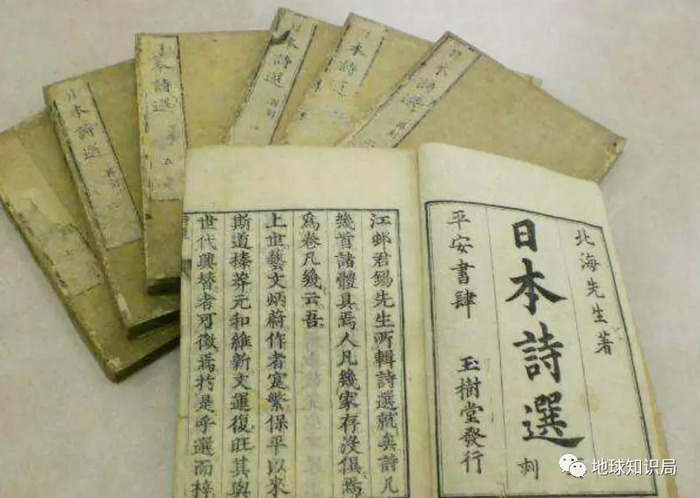 本詩選
日本詩選
本詩選 五
本詩選
本詩選
日本詩選
北海先生著
日本詩選
刻
平安書肆 玉樹堂發行
江邨君錫先生所輯詩選就矣詩凡
幾首諸體具焉人凡幾家存沒俱焉
爲卷凡幾云吾
上世藝文炳蔚作者寔繁保平以來
斯道榛莽元和維新文運復旺其與
世代興替者可徵焉於是乎選而梓
地球知识局